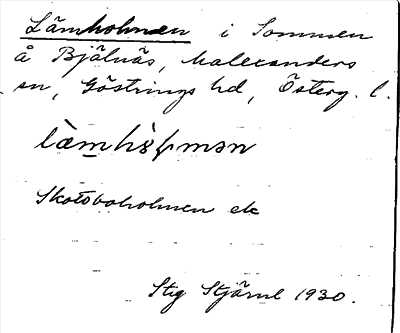 Lämholmen i Sommen
å Bjälnäs, Malexanders
sn, Göstrings hd, Österg. l.
Skotsboholmen ek
Stig Stjärnl 1930.